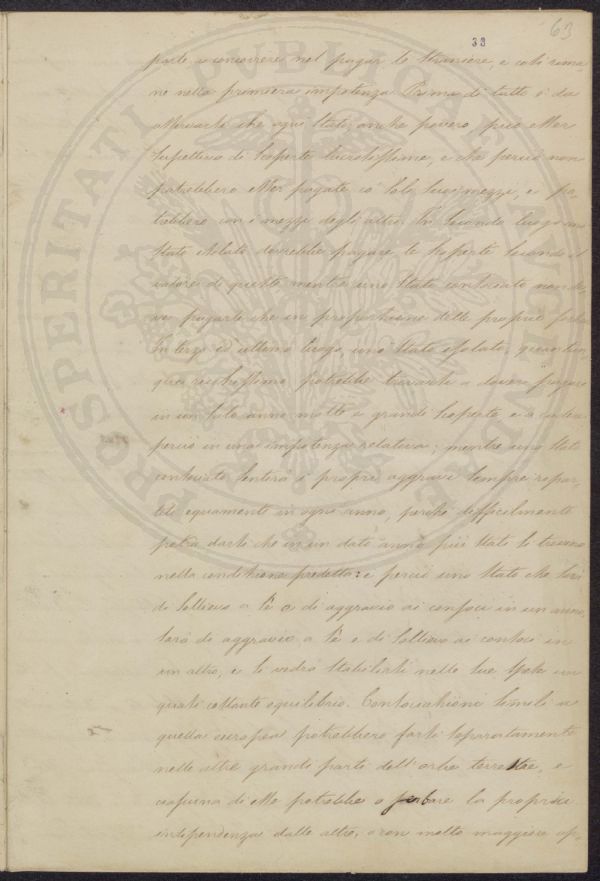 33
63
parte a concorrere nel pagar le straniere, e così rima-
ne nella primiera impotenza. Prima di tutto è da
osservarsi che ogni Stato, anche povero può esser
suscettivo di scoperte lucrosissime, e che perciò non
potrebbero esser pagate co' soli suoi mezzi, e po-
trebbero con i mezzi degli altri. In secondo luogo uno
Stato isolato dovrebbe pagare le scoperte secondo il
valore di queste mentre uno Stato consociato non de-
ve pagarle che in proporzione delle proprie forze
In terzo ed ultimo luogo, uno Stato isolato, quantun-
que ricchissimo potrebbe trovarsi a dovere pagare
in un solo anno molte e grandi scoperte, e a cadere
perciò in una impotenza relativa; mentre uno Stato
consociato sentirà i proprii aggravi sempre repar-
titi equamente in ogni anno, perchè difficilmente
potrà darsi che in un dato anno più Stati si trovino
nella condizione predetta: e perciò uno Stato che sarà
di sollievo a sè o di aggravio ai consoci in un anno,
sarà di aggravio a sè e di sollievo ai consoci in
un altro, e si vedrà stabilirsi nelle sue spese un
quasi costante equilibrio. Consociazioni simili a
quella europea potrebbero farsi separatamente
nelle altre grandi parti dell'orbe terrestre, e
ciascuna di esse potrebbe o serbare la propria
indipendenza dalle altre, o con molto maggiore op-
PROSPERITATI PUBLICAE AUGENDAE